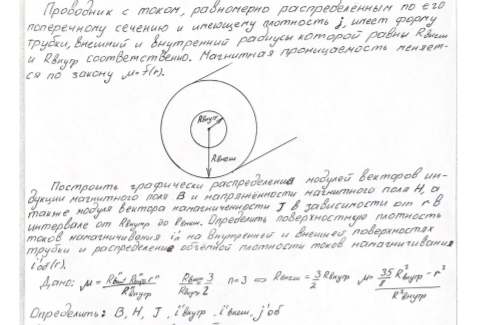 Проводник с током, равномерно распределённым по его
поперечному сечению и имеющему плотность j, имеет форму
трубки, внешний и внутренний радиусы которой равны Rвнеш
и Rвнутр соответственно. Магнитная проницаемость меняет-
ся по закону μ=f(r).
Rвнутр
Rвнеш
Построить графически распределения модулей векторов ин-
дукции магнитного поля B и напряжённости магнитного поля H, а
также модуля вектора намагниченности J в зависимости от r в
интервале от Rвнутр до Rвнеш. Определить поверхностную плотность
токов намагничивания i'п на внутренней и внешней поверхностях
трубки и распределение объёмной плотности токов намагничивания
i'об(r).
Дано: n=3 ⇒ Rвнеш = 3/2 Rвнутр
Определить: B, H, J, i'внутр, i'внеш, j'об